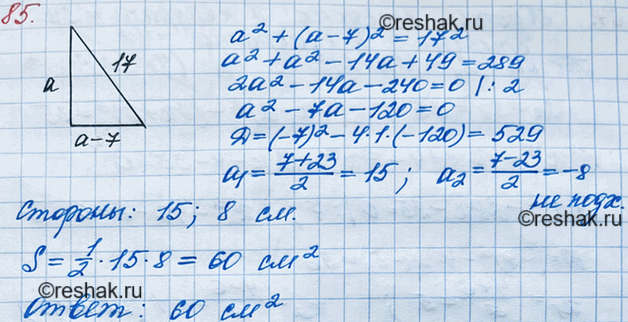 85.
©reshak.ru
a² + (a-7)² = 17²
a² + a² - 14a + 49 = 289
2a² - 14a - 240 = 0 |: 2
a² - 7a - 120 = 0
D = (-7)² - 4·1·(-120) = 529
a₁ = (7+23)/2 = 15; a₂ = (7-23)/2 = -8
не подх.
©reshak.ru
17
a
a-7
Стороны: 15; 8 см.
S = 1/2 · 15 · 8 = 60 см²
©reshak.ru
Ответ: 60 см²